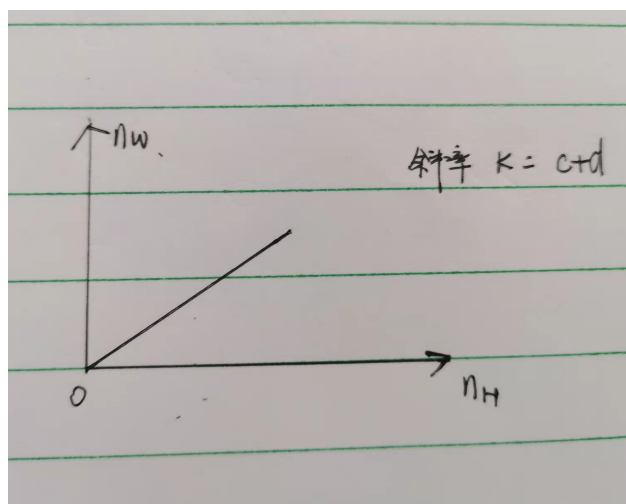 nw.
斜率 K = c+d
0
nH